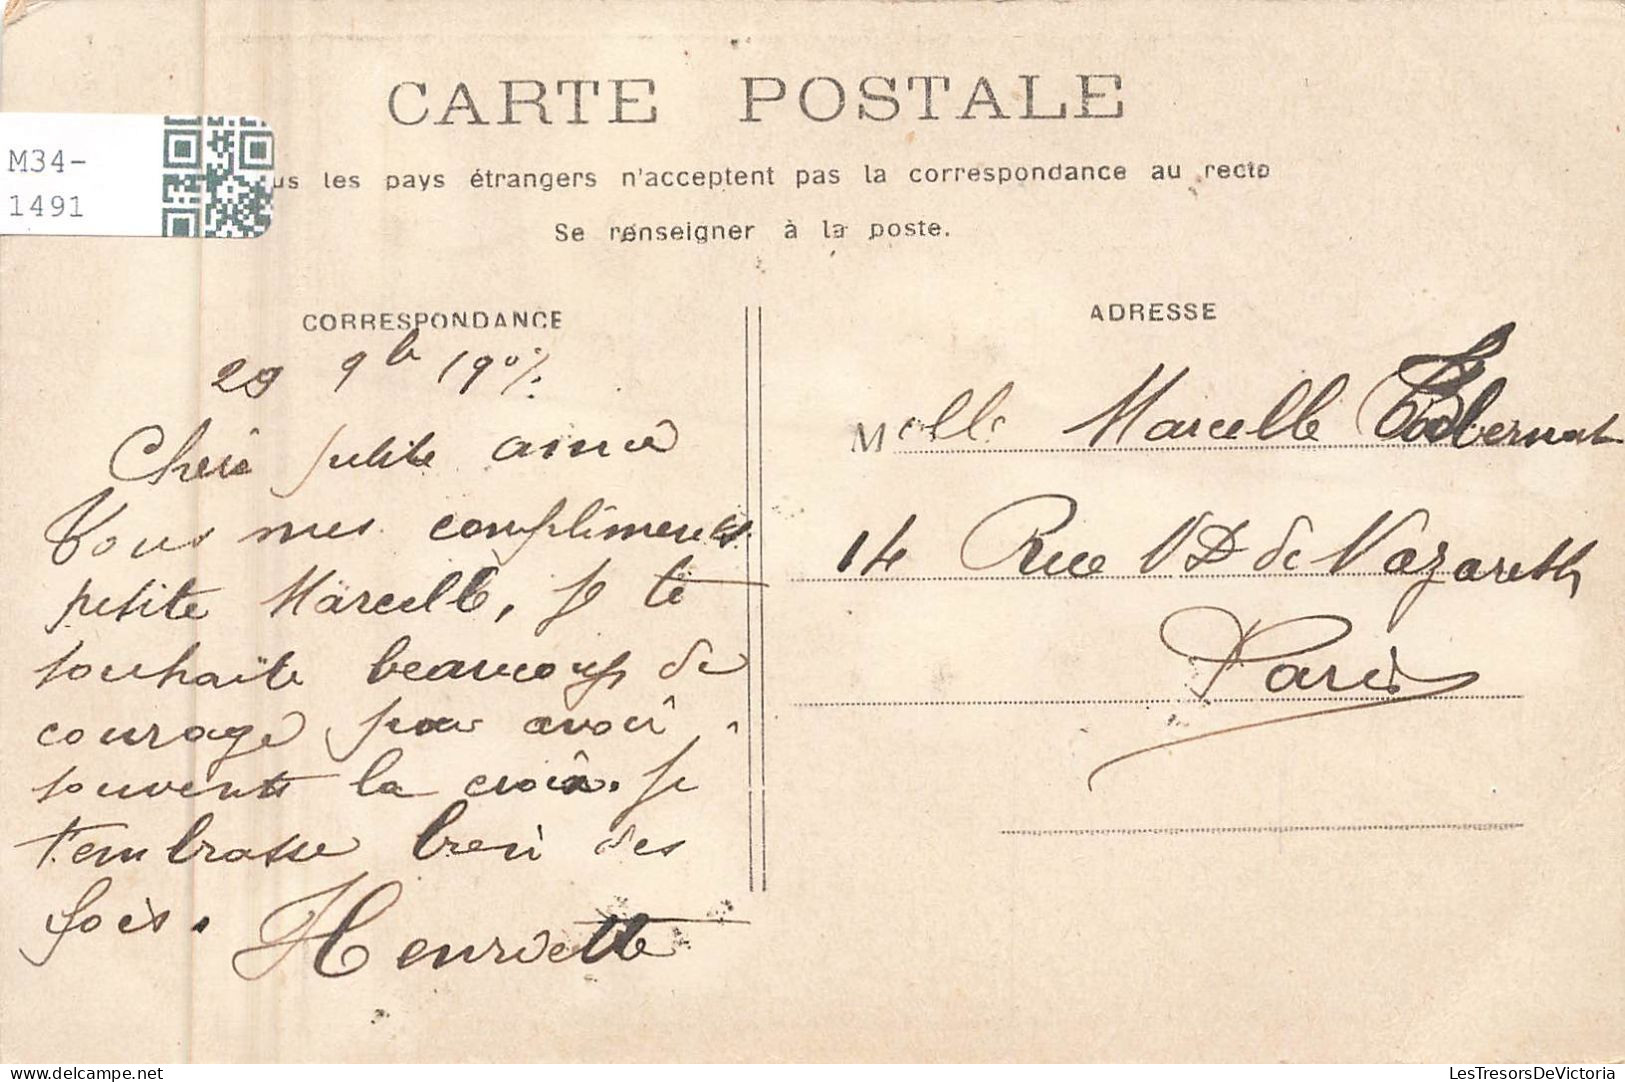 CARTE POSTALE
M34-
1491
us les pays étrangers n'acceptent pas la correspondance au recto
Se renseigner à la poste.
CORRESPONDANCE
29 9b 190
Cheìe petite amie
Tous mes compliments
petite Marcelle, je te
souhaite beaucoup de
courage pour avoir
souvents la croix. Je
t'embrasse bien des
fois.
Henriette
ADRESSE
Melle Marcelle
14 Rue ND de Nazareth
Paris
LesTresorsDeVictoria